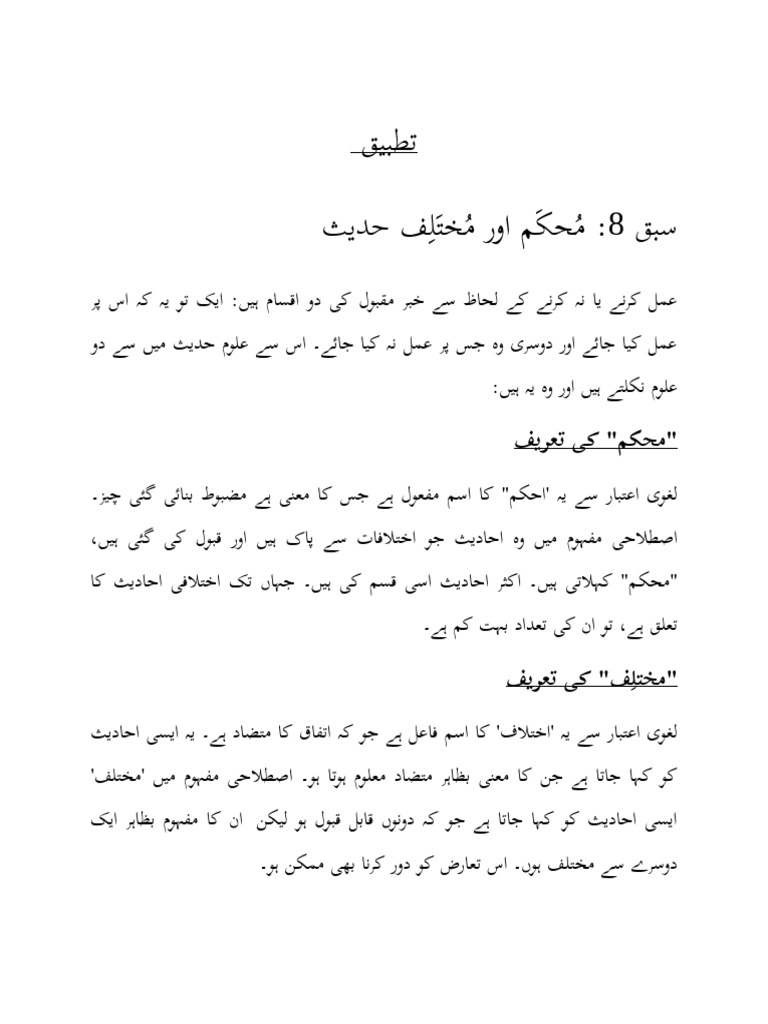 تطبیق
سبق 8: مُحکَم اور مُختَلِف حدیث
عمل کرنے یا نہ کرنے کے لحاظ سے خبر مقبول کی دو اقسام ہیں: ایک تو یہ کہ اس پر
عمل کیا جائے اور دوسری وہ جس پر عمل نہ کیا جائے۔ اس سے علوم حدیث میں سے دو
علوم نکلتے ہیں اور وہ یہ ہیں:
"محکم" کی تعریف
لغوی اعتبار سے یہ 'احکم" کا اسم مفعول ہے جس کا معنی ہے مضبوط بنائی گئی چیز۔
اصطلاحی مفہوم میں وہ احادیث جو اختلافات سے پاک ہیں اور قبول کی گئی ہیں،
"محکم" کہلاتی ہیں۔ اکثر احادیث اسی قسم کی ہیں۔ جہاں تک اختلافی احادیث کا
تعلق ہے، تو ان کی تعداد بہت کم ہے۔
"مختلِف" کی تعریف
لغوی اعتبار سے یہ 'اختلاف' کا اسم فاعل ہے جو کہ اتفاق کا متضاد ہے۔ یہ ایسی احادیث
کو کہا جاتا ہے جن کا معنی بظاہر متضاد معلوم ہوتا ہو۔ اصطلاحی مفہوم میں 'مختلف'
ایسی احادیث کو کہا جاتا ہے جو کہ دونوں قابل قبول ہو لیکن ان کا مفہوم بظاہر ایک
دوسرے سے مختلف ہوں۔ اس تعارض کو دور کرنا بھی ممکن ہو۔